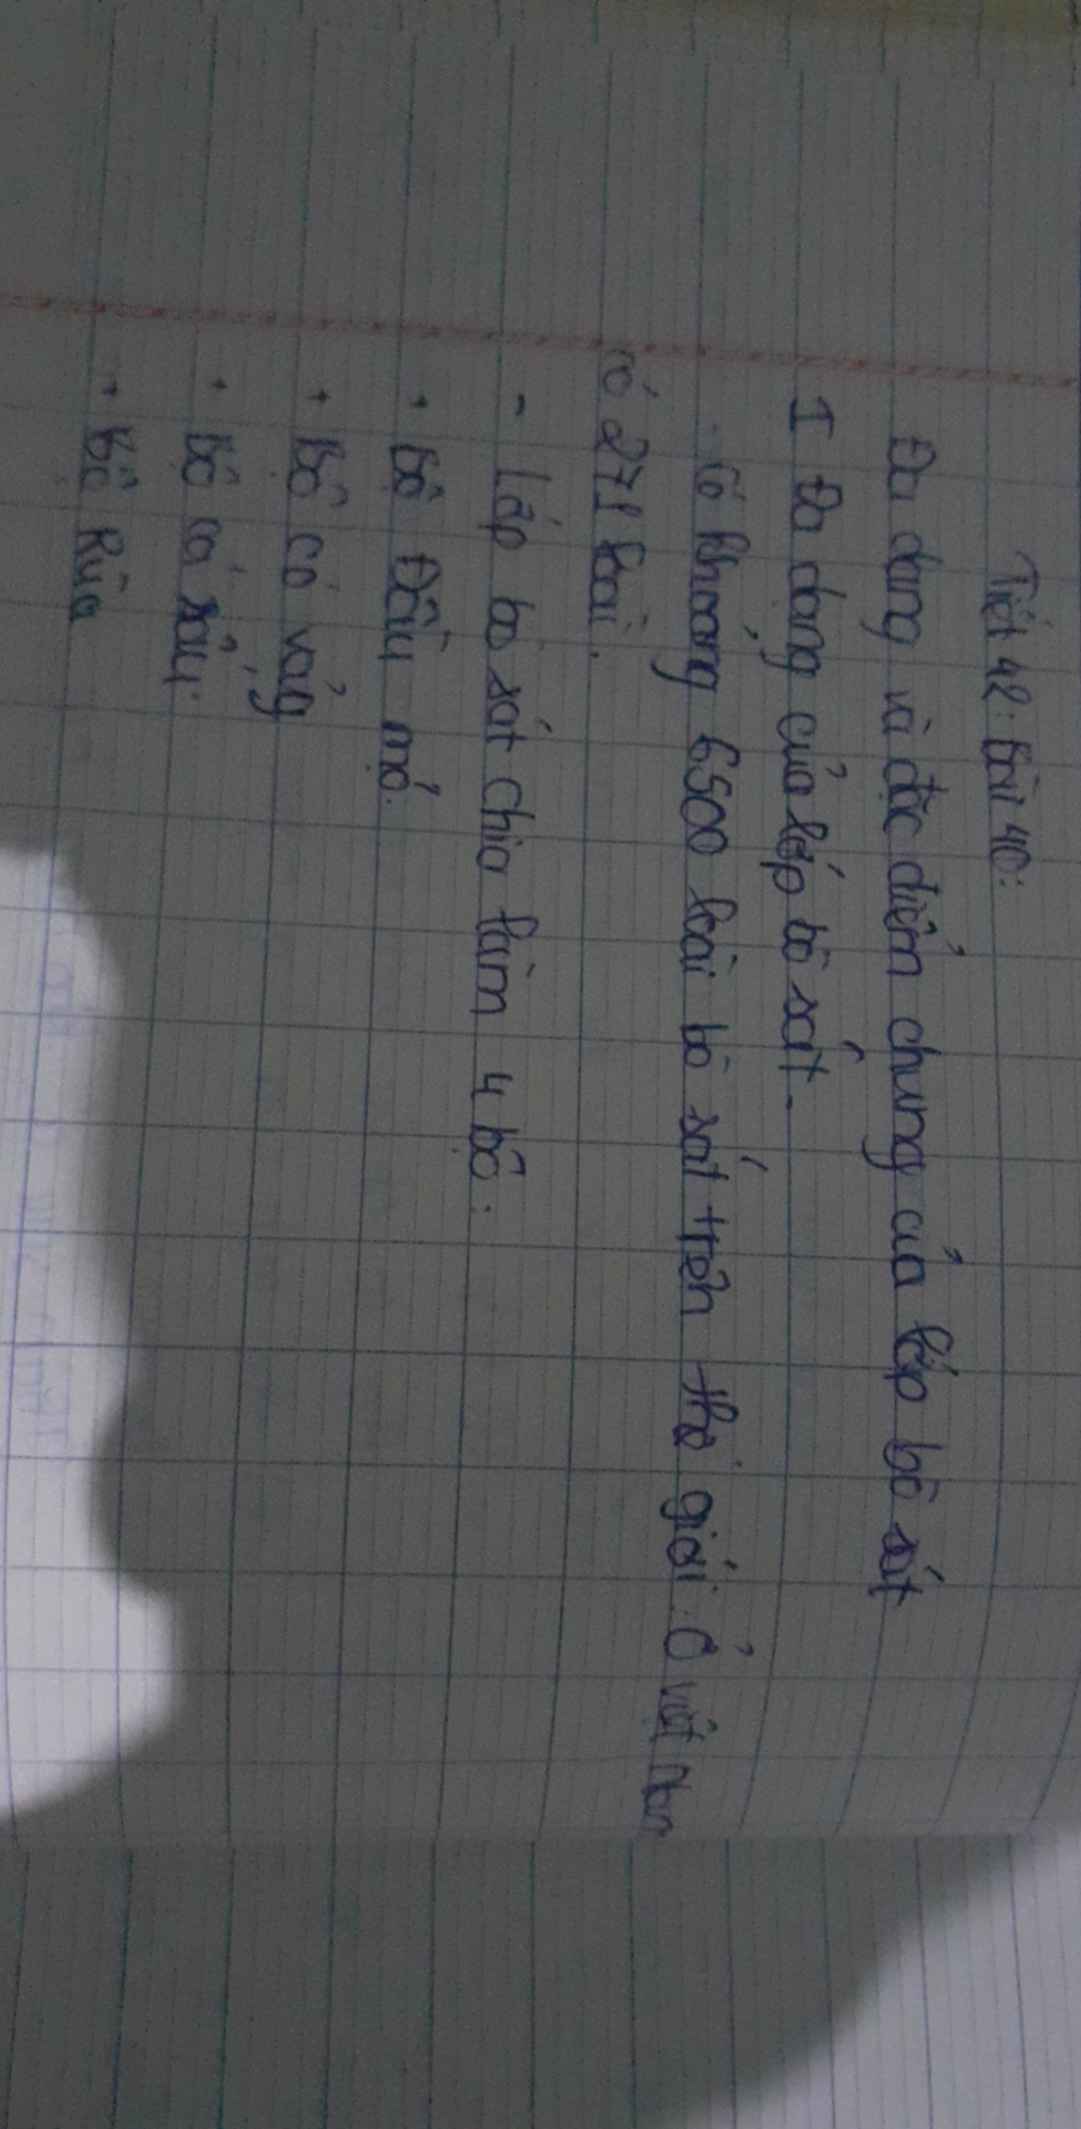 Tiết 42: Bài 40:
Đa dạng và đặc điểm chung của lớp bò sát
I Đa dạng của lớp bò sát.
- Có khoảng 6500 loài bò sát trên thế giới. Ở Việt Nam
có 271 loài.
- Lớp bò sát chia làm 4 bộ:
+ Bộ Đầu mỏ.
+ Bộ có vảy
+ Bộ cá sấu.
+ Bộ Rùa